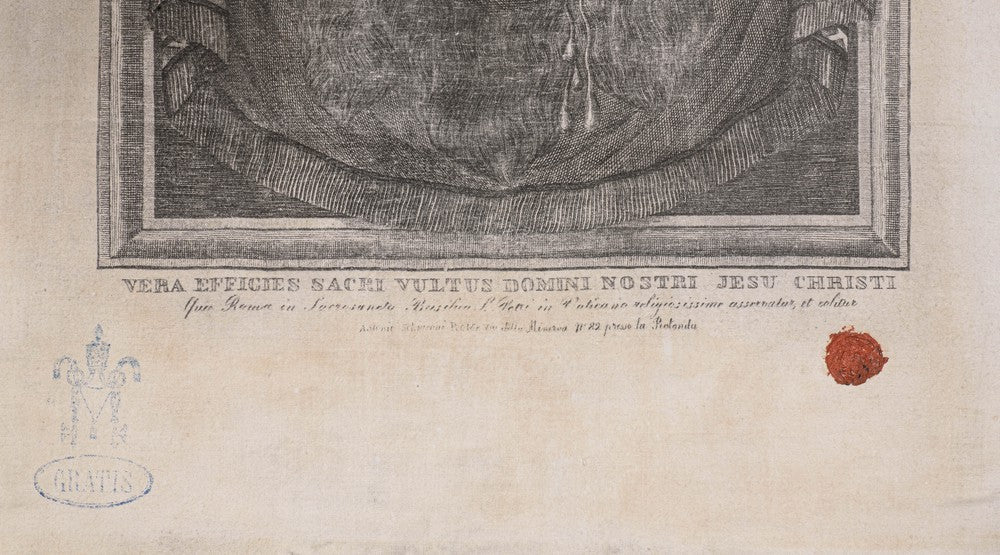 VERA EFFIGIES SACRI VULTUS DOMINI NOSTRI JESU CHRISTI
Quæ Romæ in Sacrosancta Basilica S. Petri in Vaticano religiosissime asservatur, et colitur
Minerva N° 82 presso la Rotonda
GRATIS